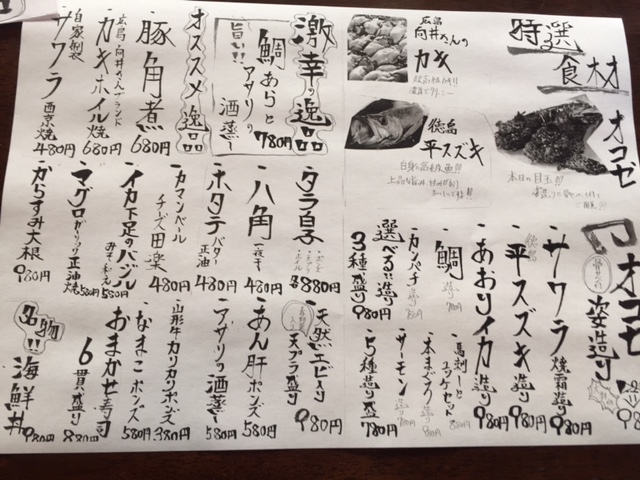 特選
食材
オコゼ
本日の目玉!!!
広島
向井さんの
カキ
徳島
平スズキ
白身の高級魚!!!
激辛の逸品
旨い!!
鯛あらと
アサリの
酒蒸し
780円
オススメ逸品
豚角煮
680円
広島・向井さんブランド
カキホイル焼
680円
自家製
サワラ
西京焼
480円
オコゼ
姿造り
徳島
サワラ
焼霜造り
980円
平スズキ造り
980円
あおりイカ造り
980円
鯛
造り
カンパチ
選べる造り
3種盛り
980円
馬刺しと
ユッケセット
本まぐろ
造り
サーモン
造り
5種造り盛
タラ白子
各880円
八角
一夜干
480円
ホタテ
バター
正油
480円
カマンベール
チーズ田楽
480円
イカ下足のバジル
みそ和え
580円
マグロガーリック正油焼
580円
からすみ大根
980円
天然エビ入り
天プラ盛り
980円
あん肝ポンズ
580円
アサリの酒蒸し
580円
山形牛カリカリポンズ
380円
なまこポンズ
580円
おまかせ寿司
6貫盛り
880円
名物!!
海鮮丼
980円